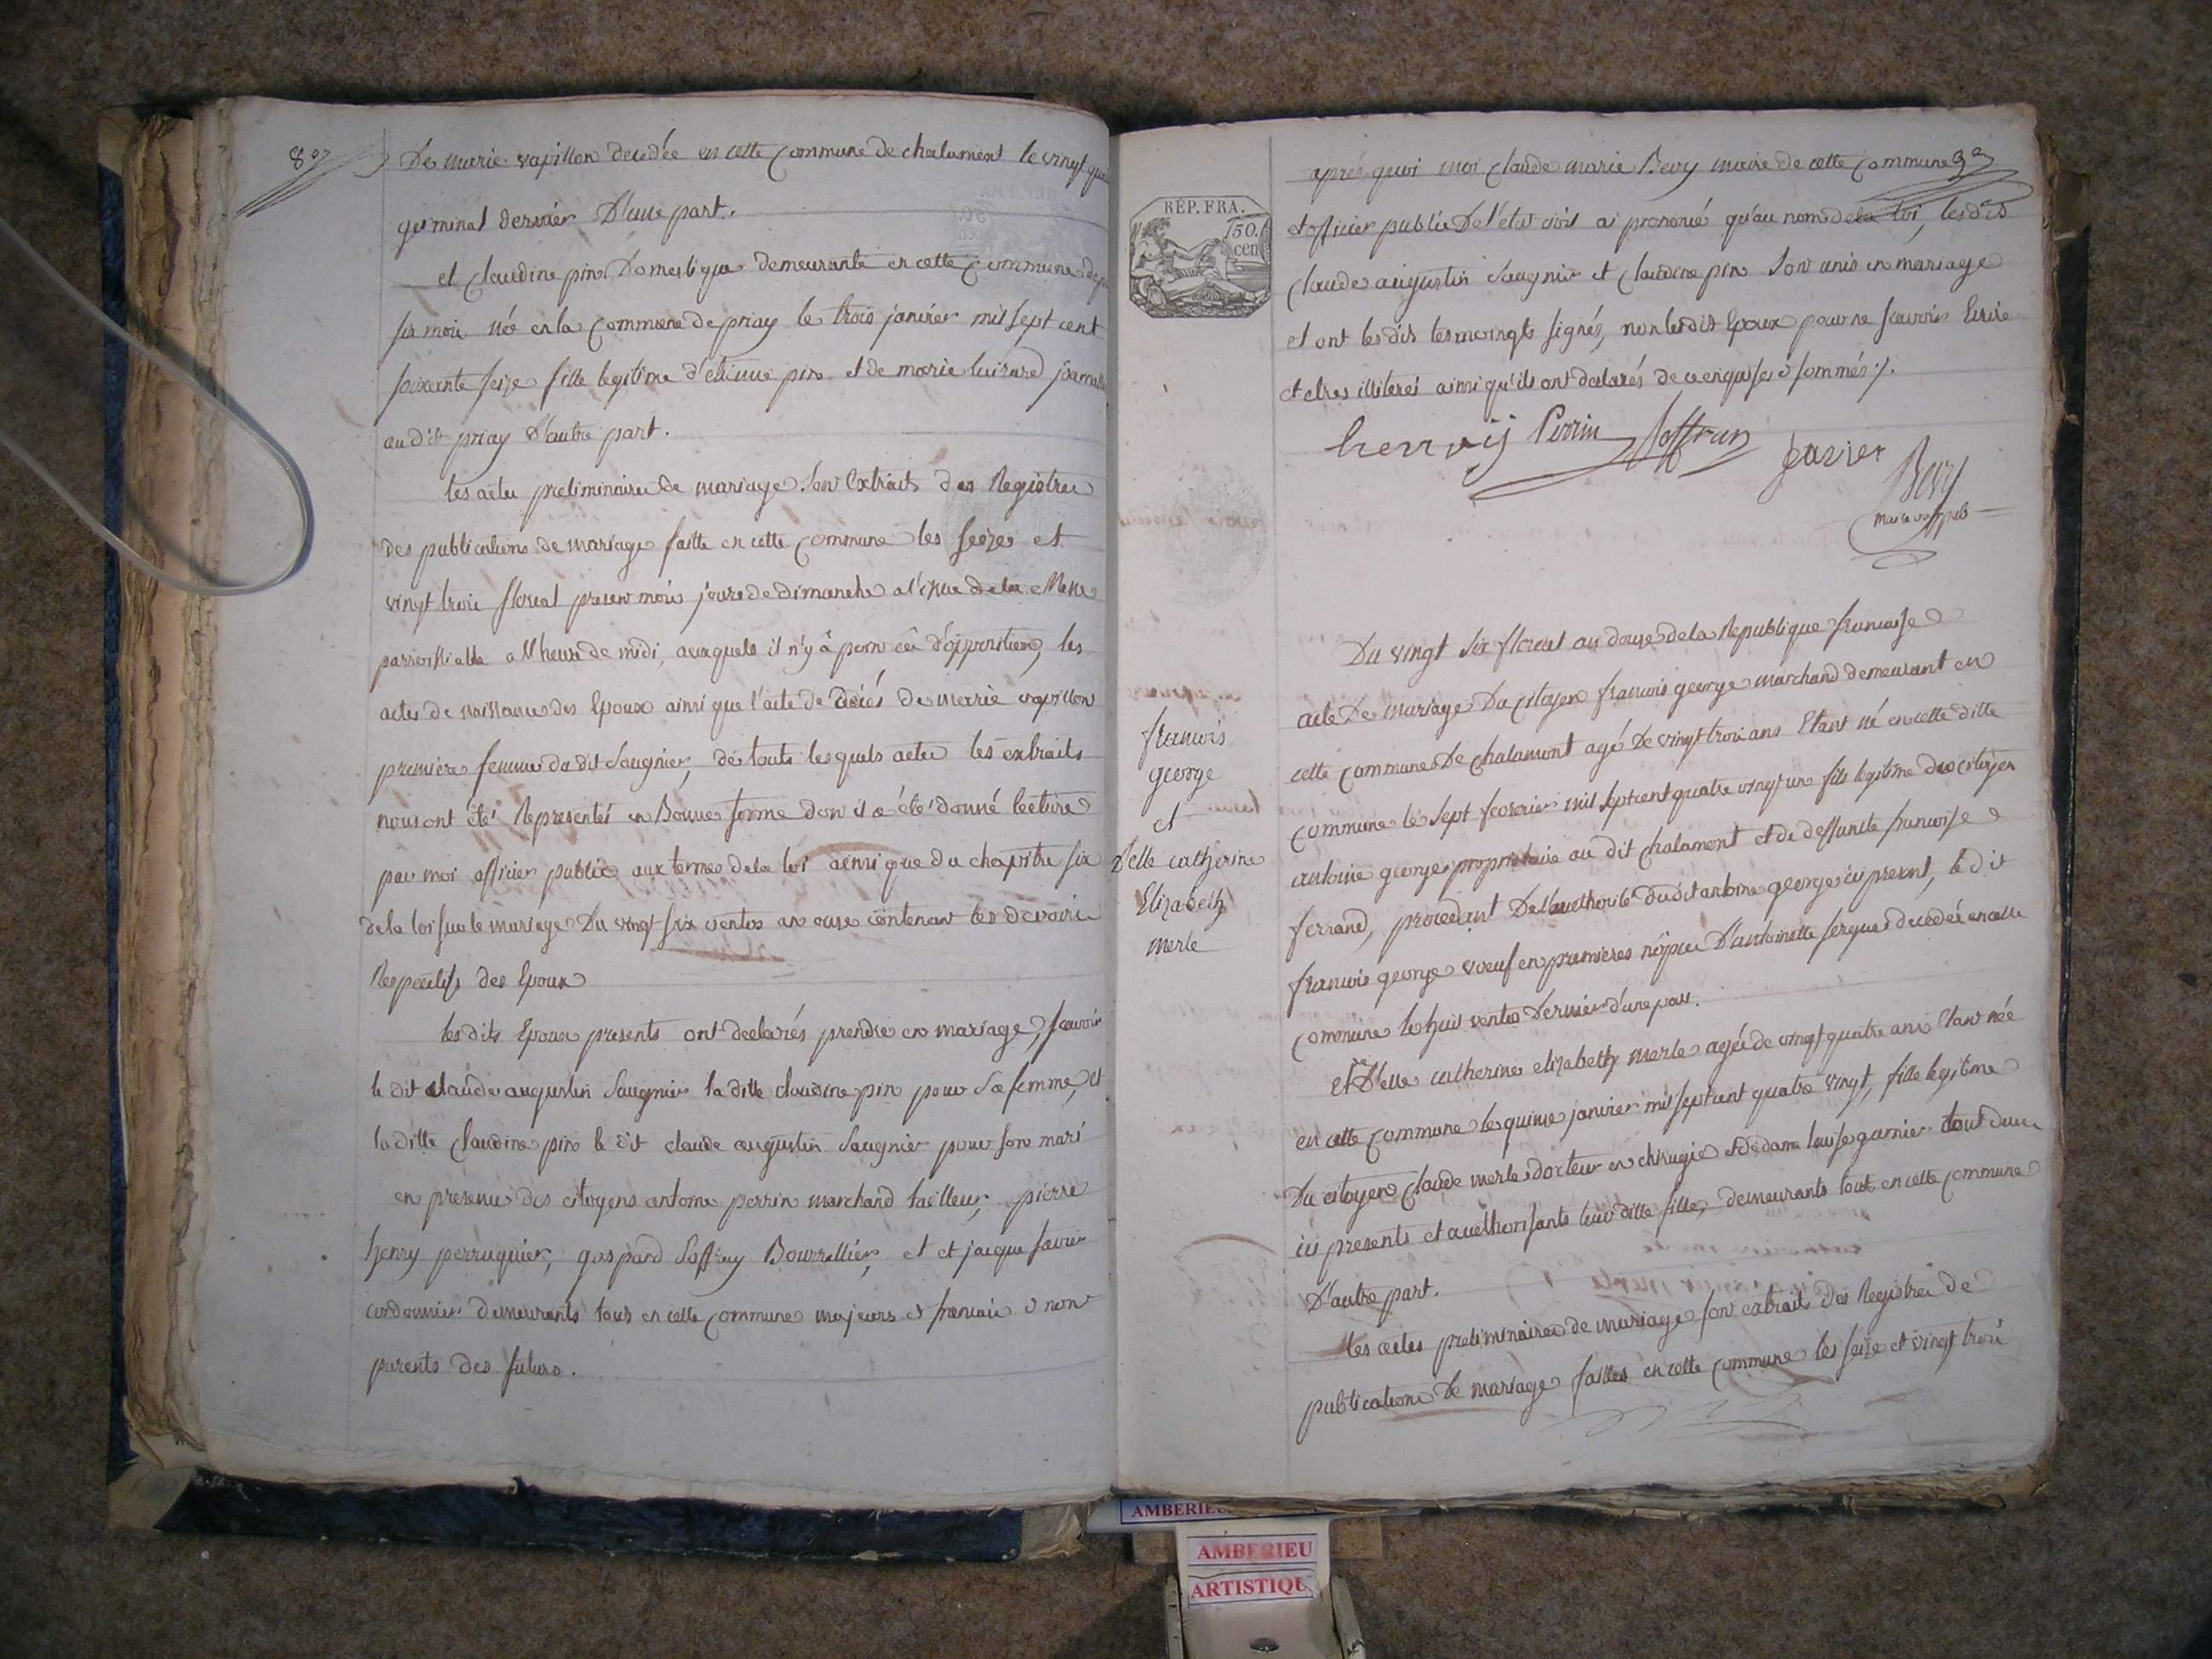 8
De marie vapillon decedée en cette commune de chalamont le vingt
germinal dernier D'une part.
et claudine pin Domestique demeurante en cette commune
six mois née en la commune de priay le trois janvier mil sept cent
soixante seize fille legitime d'etienne pin et de marie
au dit priay D'autre part.
les actes preliminaires de mariage sont Extraits des Registres
des publications de mariage faitte en cette commune les seize et
vingt trois floreal present mois jours de dimanche a l'issue de la Messe
parroissialle a l'heure de midi, auxquels il n'y â point eû d'opposition, les
actes de naissance des Epoux ainsi que l'acte de décés de marie vapillon
première femme du dit Saugnier, de touts lesquels actes les extraits
nous ont été Representés en Bonne forme dont il a été donné lecture
par moi officier public aux termes de la loi ainsi que du chapitre six
de la loi sur le mariage Du vingt six ventos an onze contenant les devoirs
Respectifs des Epoux
les dits Epoux presents ont declarés prendre en mariage, scavoir
le dit claude augustin Saugnier la ditte claudine pin pour sa femme, et
la ditte claudine pin le dit claude augustin Saugnier pour son mari
en presence des citoyens antoine perrin marchand tailleur, pierre
henry perruquier, gaspard Soffray Bourrellier, et et jacque favier
cordonnier demeurants tous en cette commune majeurs et francais et non
parents des futurs.
RÉP. FRA.
50.
cen
après quoi moi claude marie Bevy maire de cette commune
et officier public De l'etat civil ai prononcé qu'au nom de la loi, les dits
claude augustin Saugnier et claudine pin sont unis en mariage
et ont les dits tesmoingts signés, non lesdits Epoux pour ne scavoir Ecrire
et etres illiterés ainsi qu'ils ont declarés de ce enquis et sommés.
henry Perrin Soffray favier
Bevy
maire off pub
françois
george
et
D'elle catherine
Elizabeth
merle
Du vingt six floreal an douze de la Republique francaise
acte De mariage Du citoyen francois george marchand demeurant en
cette commune De chalamont agé De vingt trois ans Etant né en cette ditte
commune le sept fevrier mil sept cent quatre vingt un fils legitime du citoyen
antoine george proprietaire au dit chalamont et de deffunte francoise
ferrand, procedant De l'authorité du dit antoine george ici present, le dit
francois george veuf en premières nopces D'anthoinette sergue decedée en cette
commune le huit ventos Dernier d'une part.
et D'elle catherine elizabeth merle agée de vingt quatre ans Etant née
en cette commune le quinze janvier mil sept cent quatre vingt, fille legitime
Du citoyen claude merle docteur en chirugie et de dame louise garnier tout deux
ici presents et authorisants leur ditte fille, demeurants tout en cette commune
D'autre part.
les actes preliminaires de mariage sont extraits des Registres de
publications De mariage faittes en cette commune les seize et vingt trois
AMBERIEU
AMBERIEU
ARTISTIQU